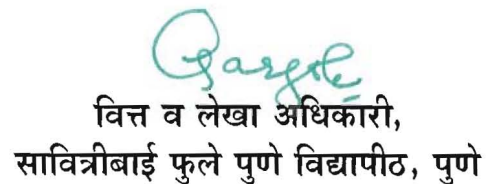 वित्त व लेखा अधिकारी,
सावित्रीबाई फुले पुणे विद्यापीठ, पुणे